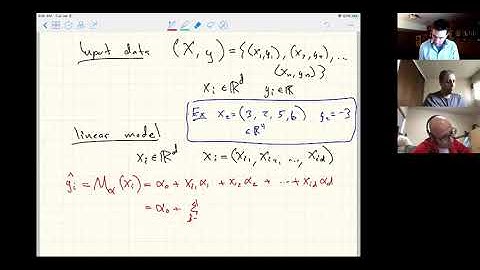 Input data (X, y) = {(x₁,y₁), (x₂,y₂), ...
(xₙ,yₙ)}
xᵢ ∈ ℝᵈ yᵢ ∈ ℝ
Ex x₂ = (3, 2, 5, 6) y₂ = -3
∈ ℝ⁴
linear model
xᵢ ∈ ℝᵈ xᵢ = (xᵢ₁, xᵢ₂, ..., xᵢd)
ŷᵢ = M_α(xᵢ) = α₀ + xᵢ₁α₁ + xᵢ₂α₂ + ... + xᵢdαd
= α₀ + Σ